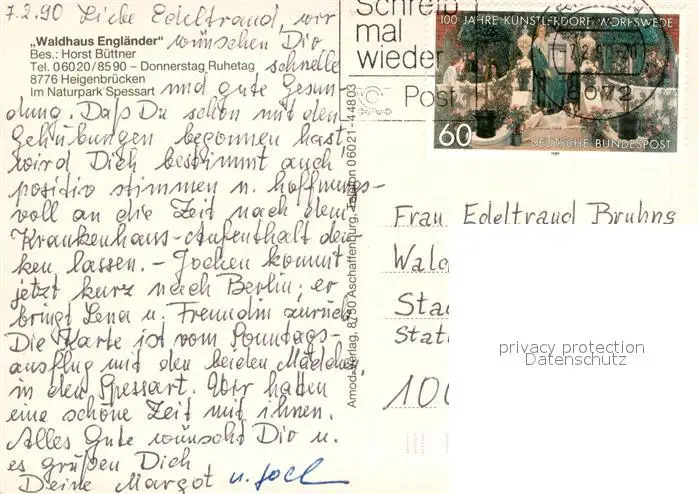 7.2.90 Liebe Edeltraud, wir
„Waldhaus Engländer"
Bes.: Horst Büttner
Tel. 06020/8590 – Donnerstag Ruhetag
8776 Heigenbrücken
Im Naturpark Spessart
wünschen Dir
schnelle
und gute Gesun-
dung. Daß Du schon mit den
Gehübungen begonnen hast
wird Dich bestimmt auch
positiv stimmen u. hoffnungs-
voll an die Zeit nach dem
Krankenhaus-Aufenthalt den-
ken lassen. – Jochen kommt
jetzt kurz nach Berlin; er
bringt Lena u. Freundin zurück.
Die Karte ist vom Sonntags-
ausflug mit den beiden Mädchen,
in den Spessart. Wir hatten
eine schöne Zeit mit ihnen.
Alles Gute wünscht Dir u.
es grüßen Dich
Deine Margot u. Joch
Amod-Verlag, 8750 Aschaffenburg, Telefon 06021-44803
Schreib
mal
wieder
Post
100 JAHRE KÜNSTLERDORF WORPSWEDE
60
DEUTSCHE BUNDESPOST
1989
6072
Frau Edeltraud Bruhns
Wald
Sta
Stat
100
privacy protection
Datenschutz